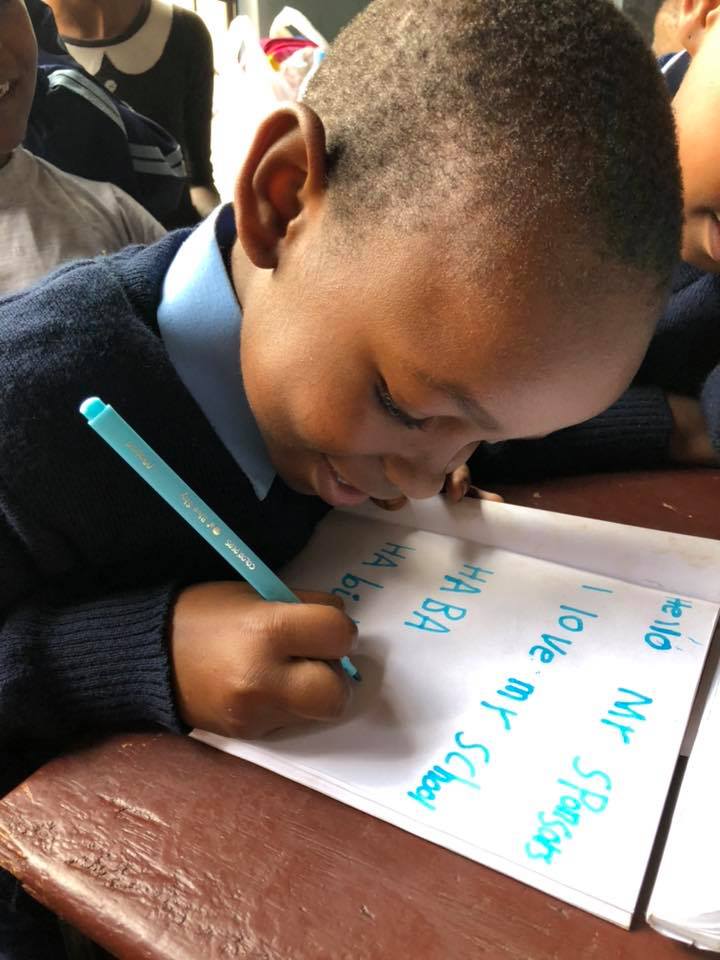 Hello Mr SPonsors
I love my SChool
HABA
HA
COLOR PENS